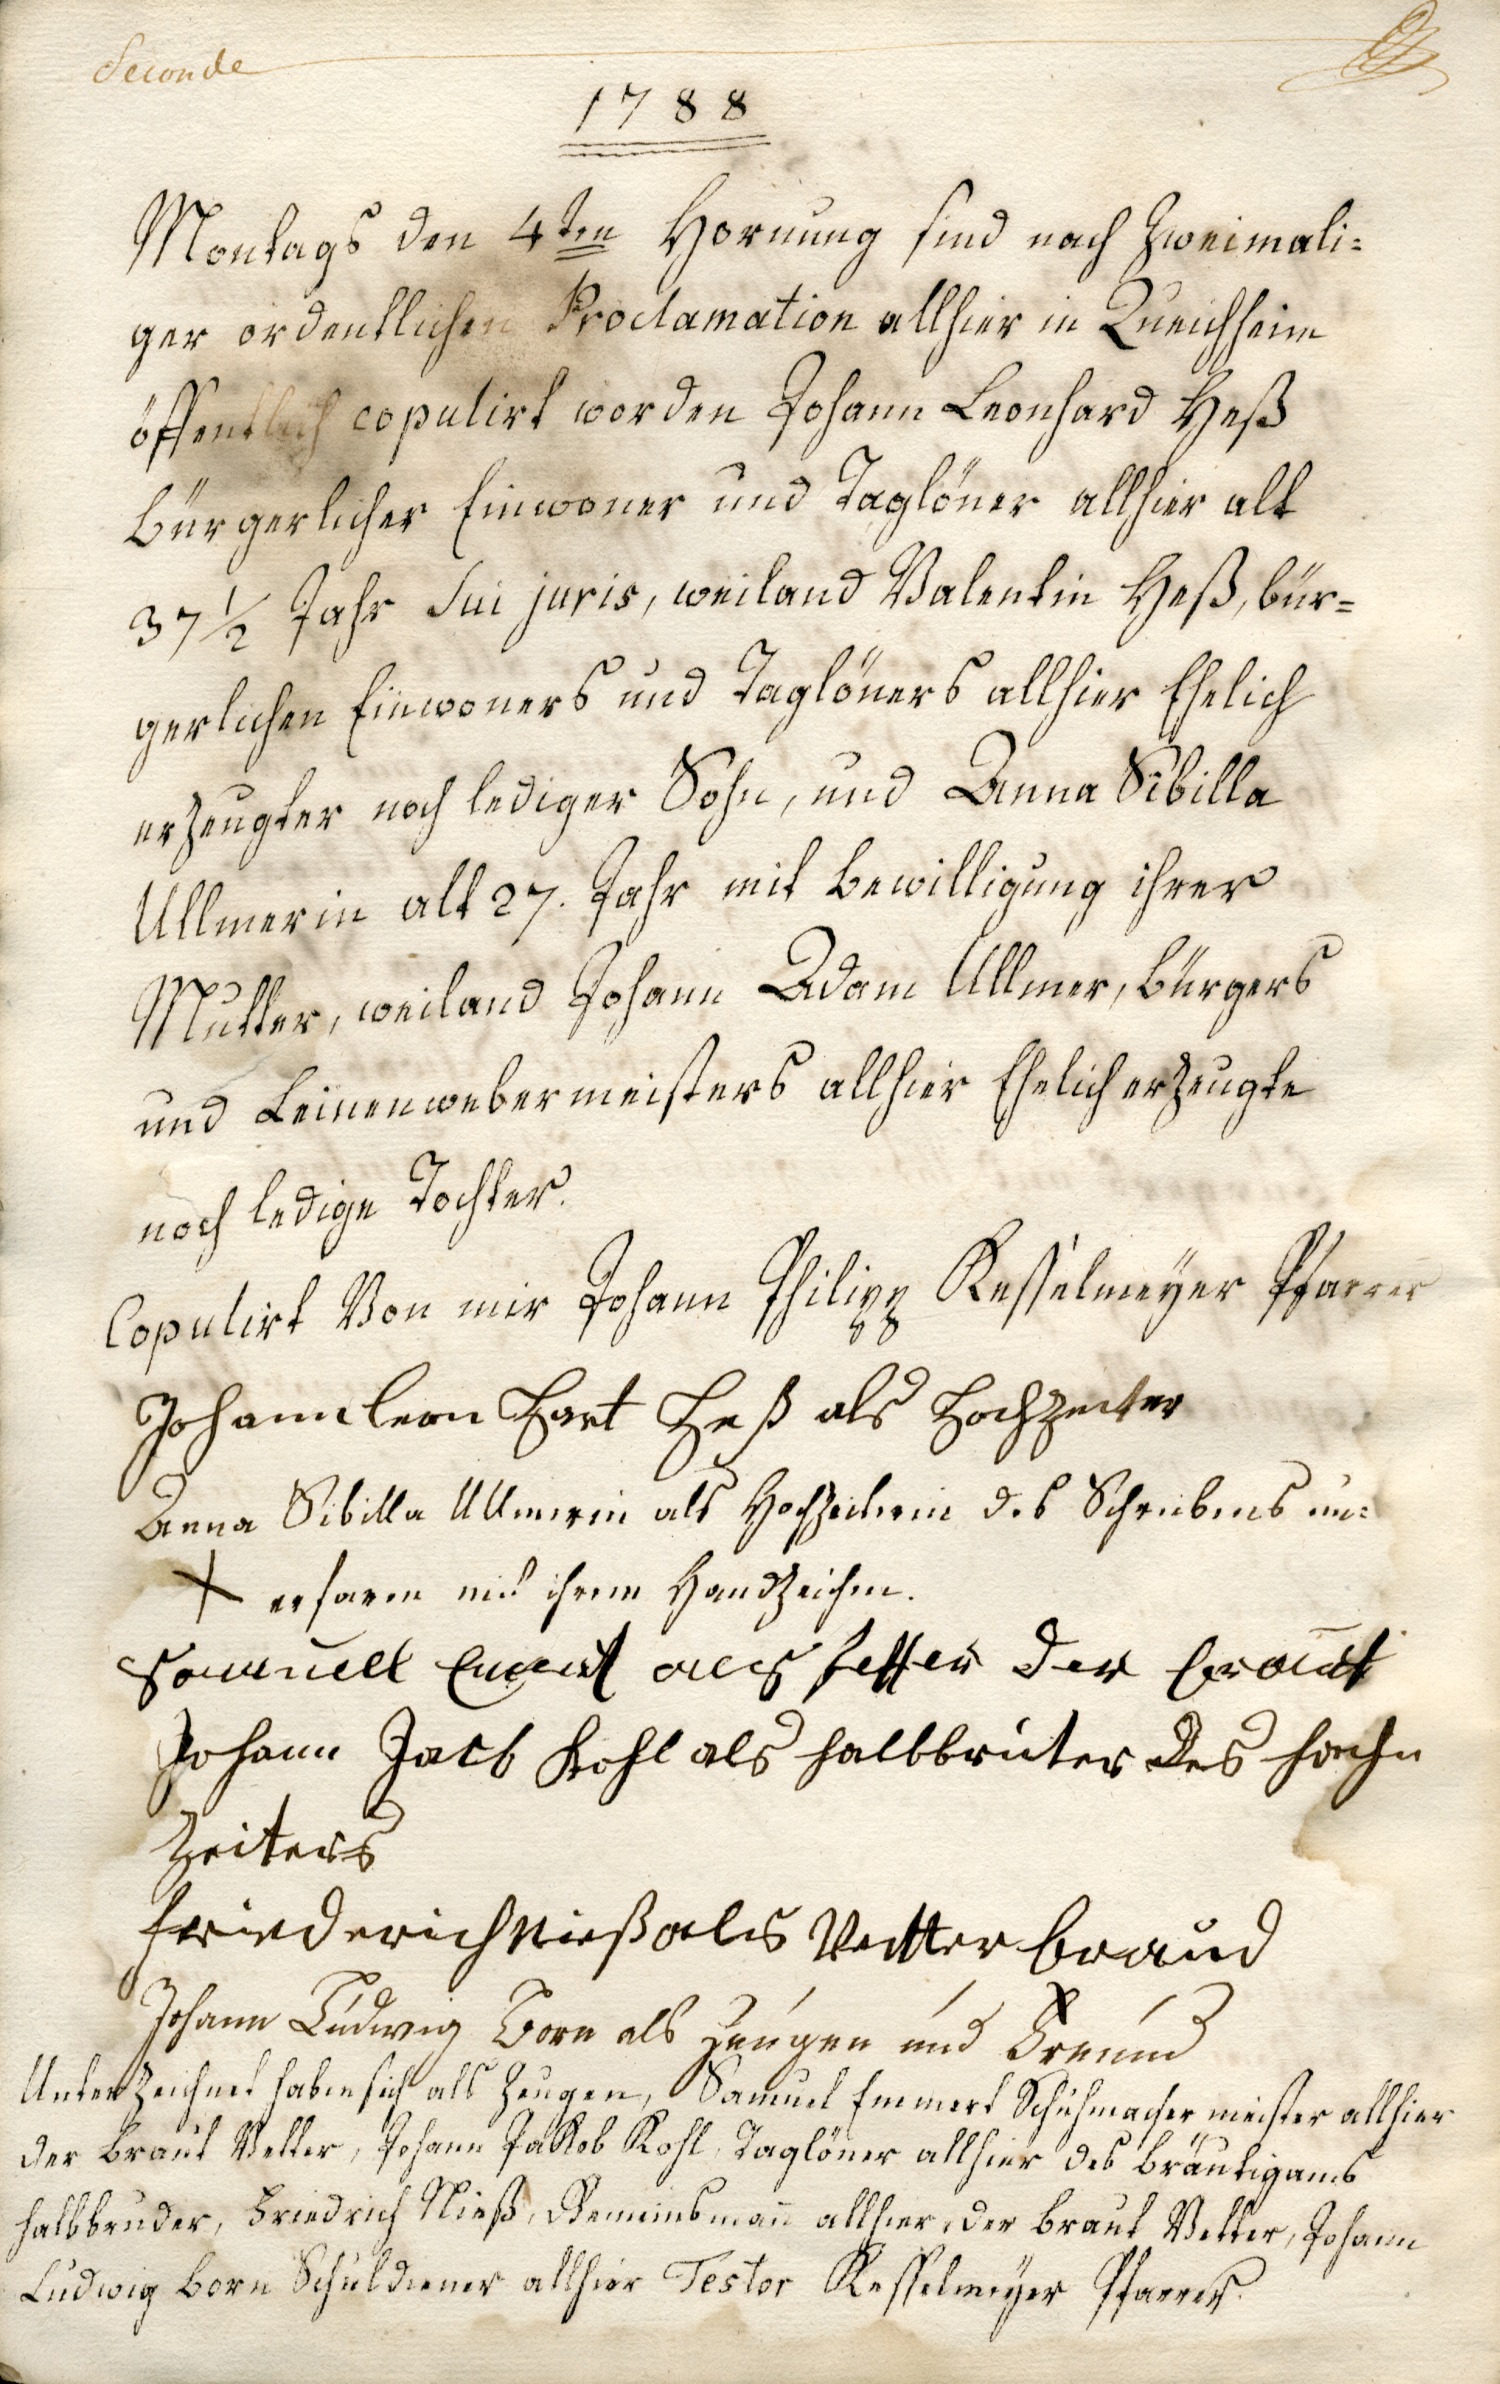 Seconde
1788
Montags den 4ten Hornung sind nach zweimali=
ger ordentlichen Proclamation allhier in Queichheim
öffentlich copulirt worden Johann Leonhard Heß
bürgerlicher Einwoner und Taglöner allhier alt
37 1/2 Jahr Sui juris, weiland Valentin Heß, bür=
gerlichen Einwoners und Taglöners allhier Ehelich
erzeugter noch lediger Sohn, und Anna Sibilla
Ullmerin alt 27. Jahr mit Bewilligung ihrer
Mutter, weiland Johann Adam Ullmer, Bürgers
und Leinenwebermeisters allhier Ehelich erzeugte
noch ledige Tochter.
Copulirt Von mir Johann Philipp Kesselmeÿer Pfarrer
Johann leon Hart Heß als Hochzeiter
Anna Sibilla Ullmerin als Hochzeiterin des Schreibens un=
+ erfaren mit ihrem Handzeichen.
Samuel als fetter der braut
Johann Jacb Kohl als halbbruter des
Zeiters
friederich Nieß als Vetter braud
Johann Ludwig Born als Zeugen und Freund
Unterzeichnet haben sich als Zeugen, Samuel Emmert Schuhmacher meister allhier
der Braut Vetter, Johann Jakob Kohl, Taglöner allhier des Bräutigams
halbbruder, Friedrich Nieß, Gemeinsmañ allhier, der Braut Vetter, Johann
Ludwig Born Schuldiener allhier Testor Kesselmeÿer Pfarrer.